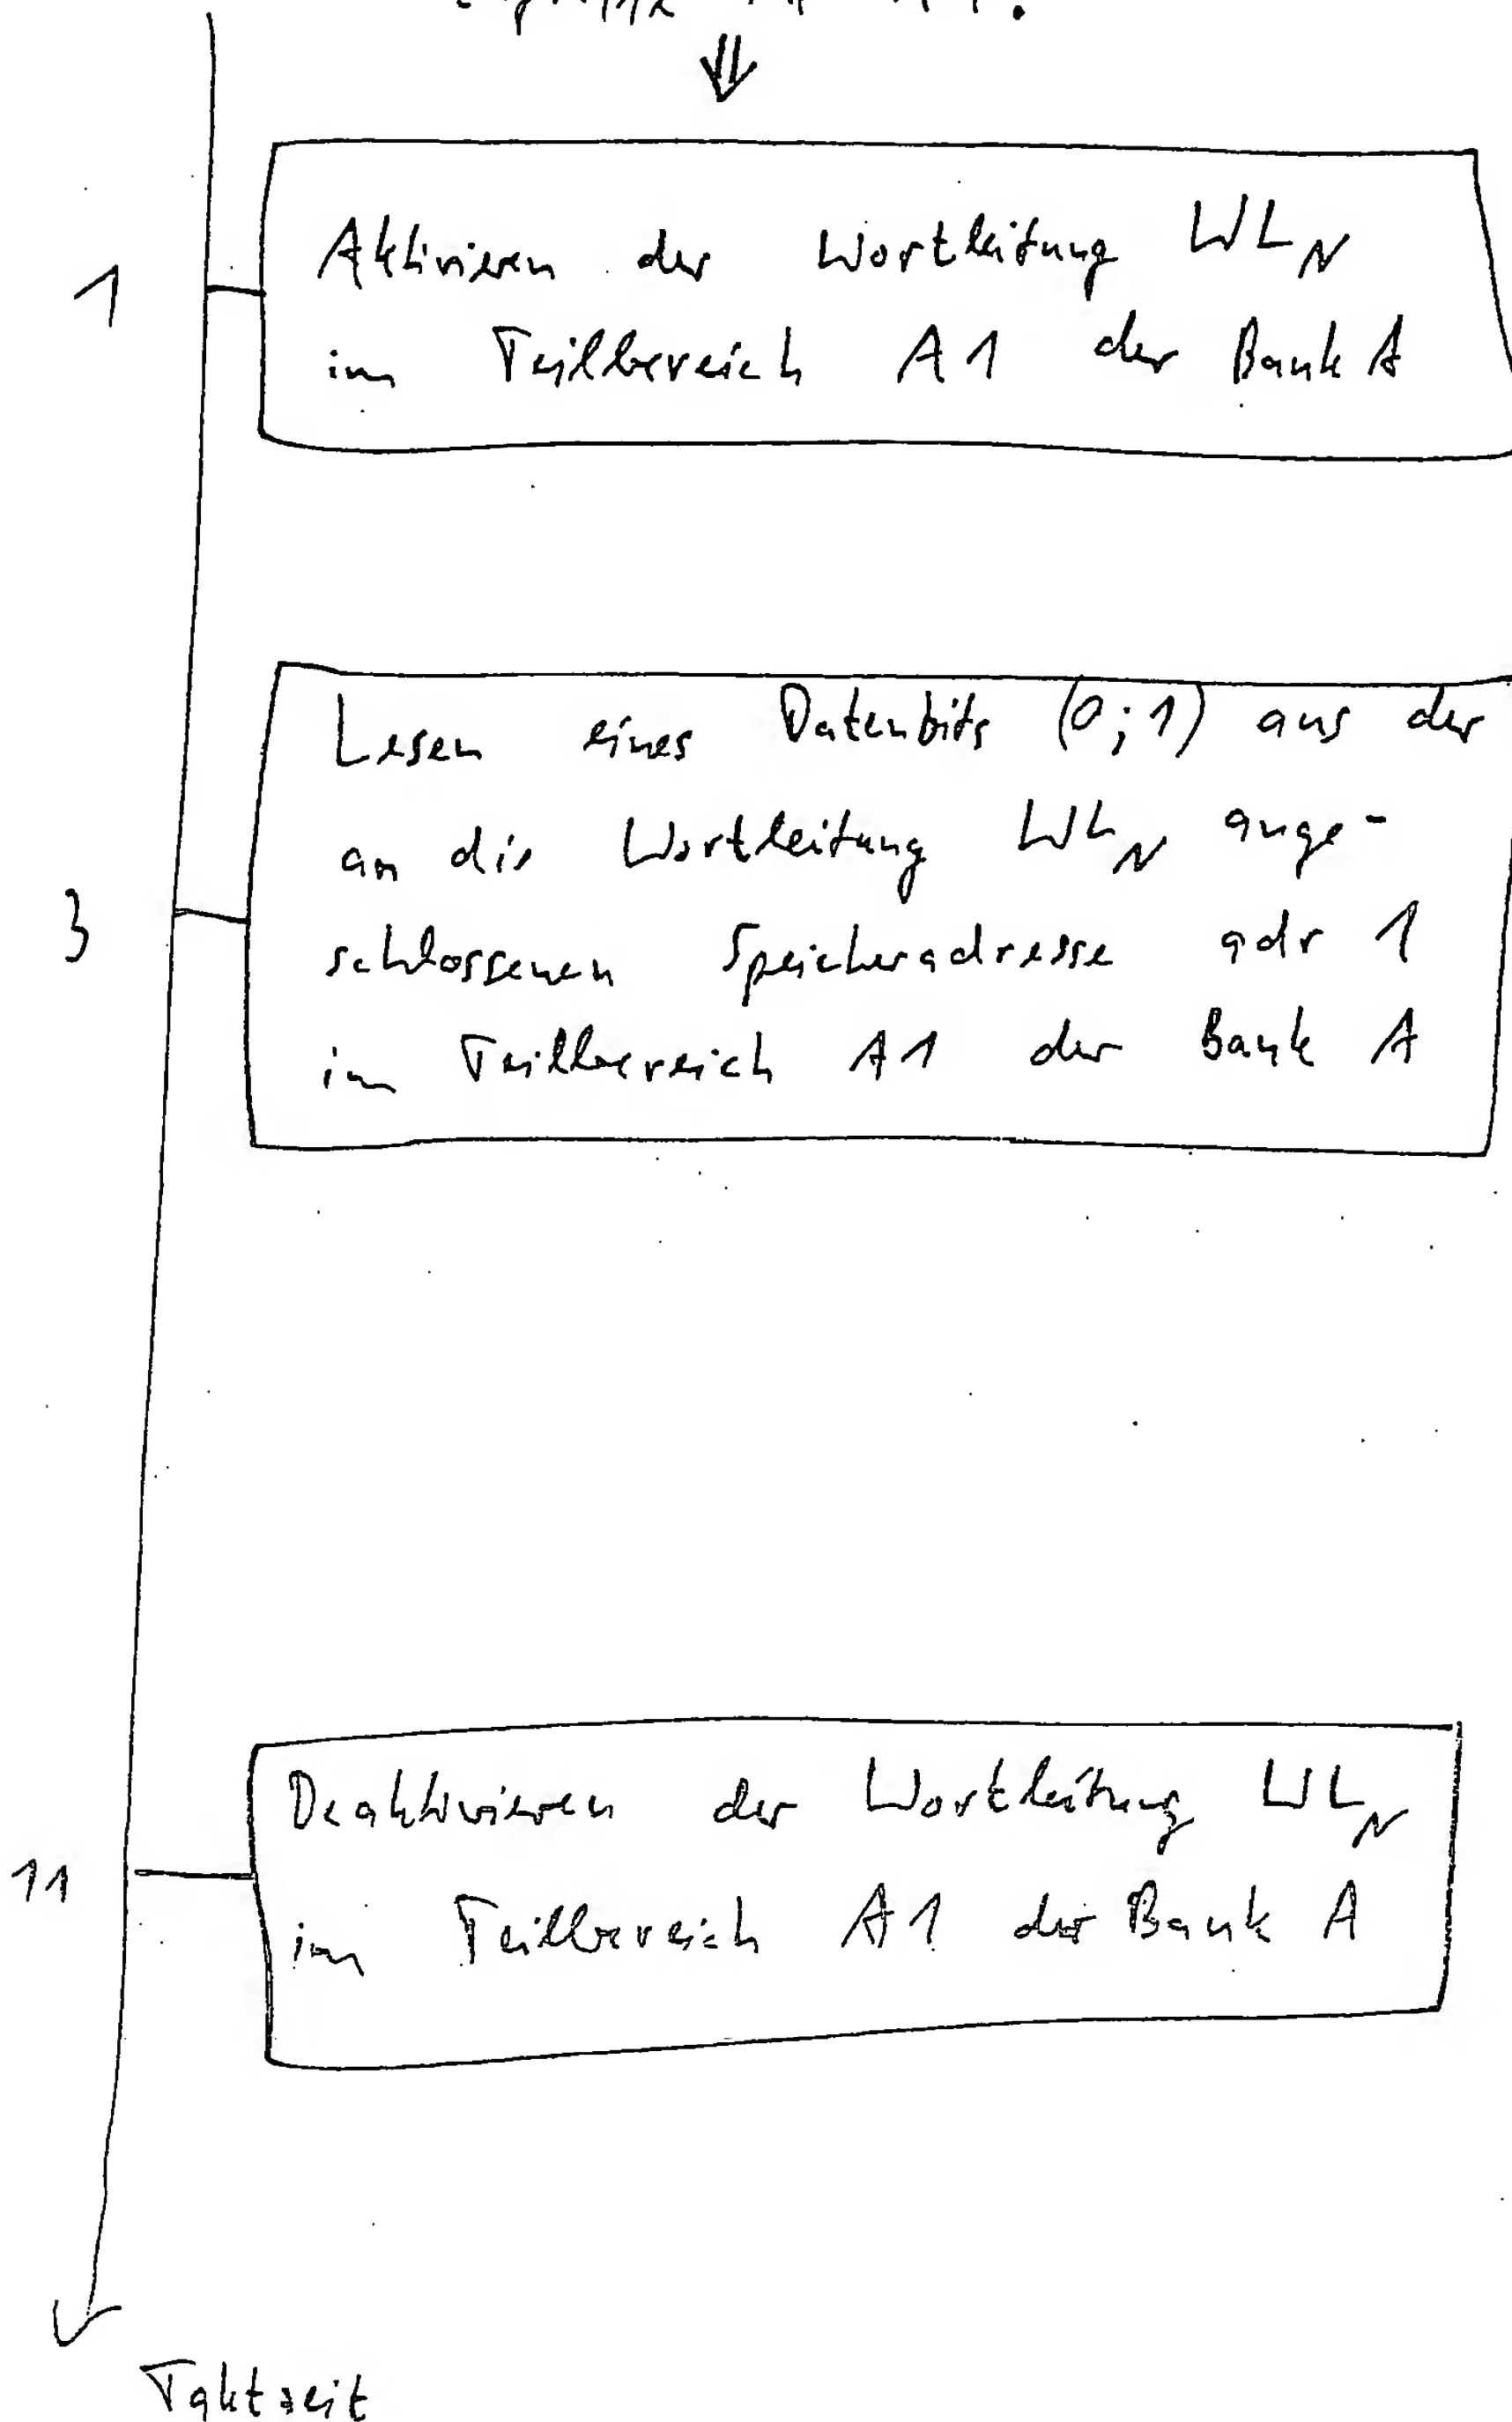 1
Aktivieren der Wortleitung WL_N
im Teilbereich A1 der Bank A
3
Lesen eines Datenbits (0;1) aus der
an die Wortleitung WL_N ange-
schlossenen Speicheradresse adr 1
im Teilbereich A1 der Bank A
11
Deaktivieren der Wortleitung WL_N
im Teilbereich A1 der Bank A
Taktzeit